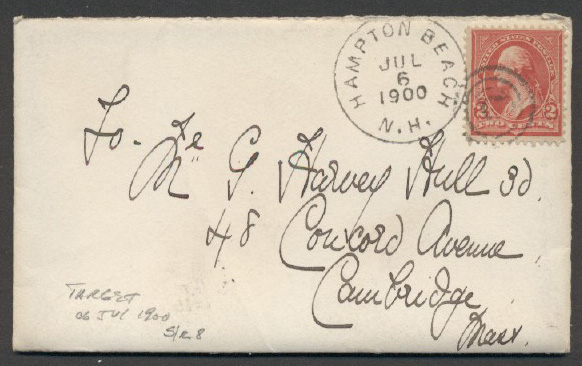 HAMPTON BEACH
JUL
6
1900
N.H.
UNITED STATES POSTAGE
2 2
TWO CENTS
To.
G. Harvey Hull 3d.
48 Concord Avenue,
Cambridge
Mass.
TARGET
06 JUL 1900